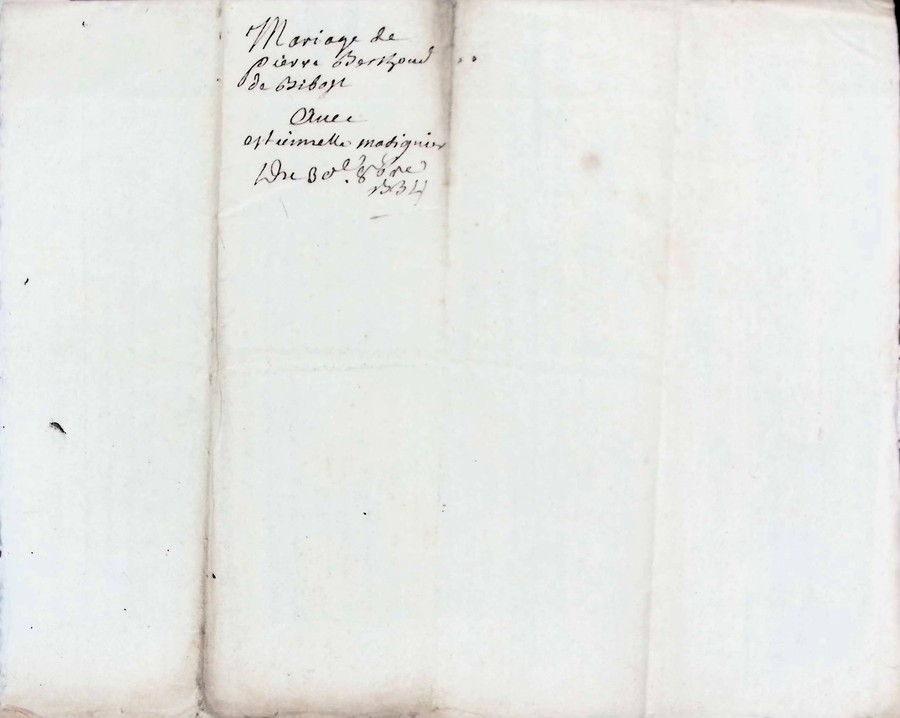 Mariage de
pierre Berthoud
de Bibost
Avec
estiennette matignier
Du 30e. 8bre
1834